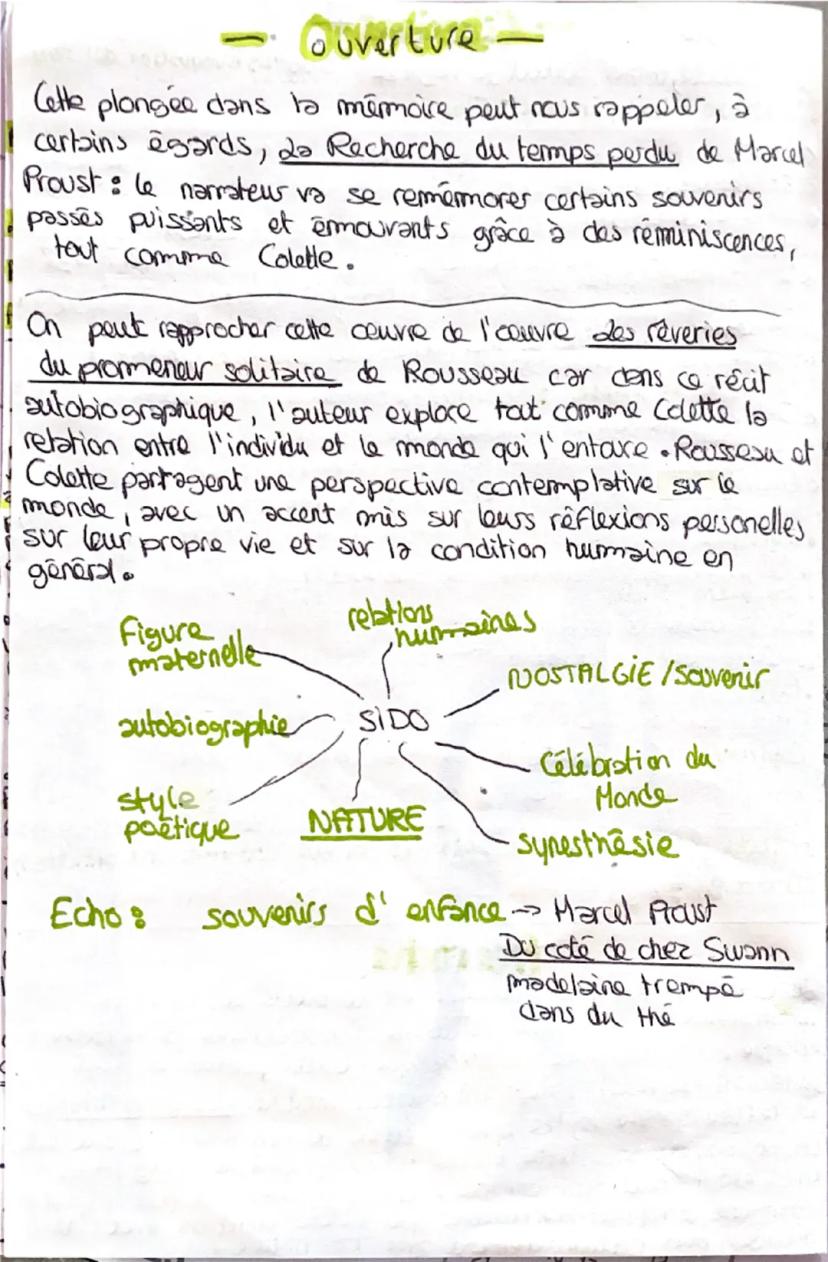 — Ouverture —
Cette plongée dans la mémoire peut nous rappeler, à
certains égards, La Recherche du temps perdu de Marcel
Proust : le narrateur va se remémorer certains souvenirs
passés puissants et émouvants grâce à des réminiscences,
tout comme Colette.
On peut rapprocher cette œuvre de l'œuvre des rêveries
du promeneur solitaire de Rousseau car dans ce récit
autobiographique, l'auteur explore tout comme Colette la
relation entre l'individu et le monde qui l'entoure. Rousseau et
Colette partagent une perspective contemplative sur le
monde, avec un accent mis sur leurs réflexions personelles
sur leur propre vie et sur la condition humaine en
général.
relations
humaines
Figure
maternelle
NOSTALGIE / Souvenir
autobiographie
SIDO
Célébration du
Monde
style
poétique
NATURE
synesthésie
Echo : souvenirs d'enfance → Marcel Proust
Du coté de chez Swann
madelaine trempé
dans du thé